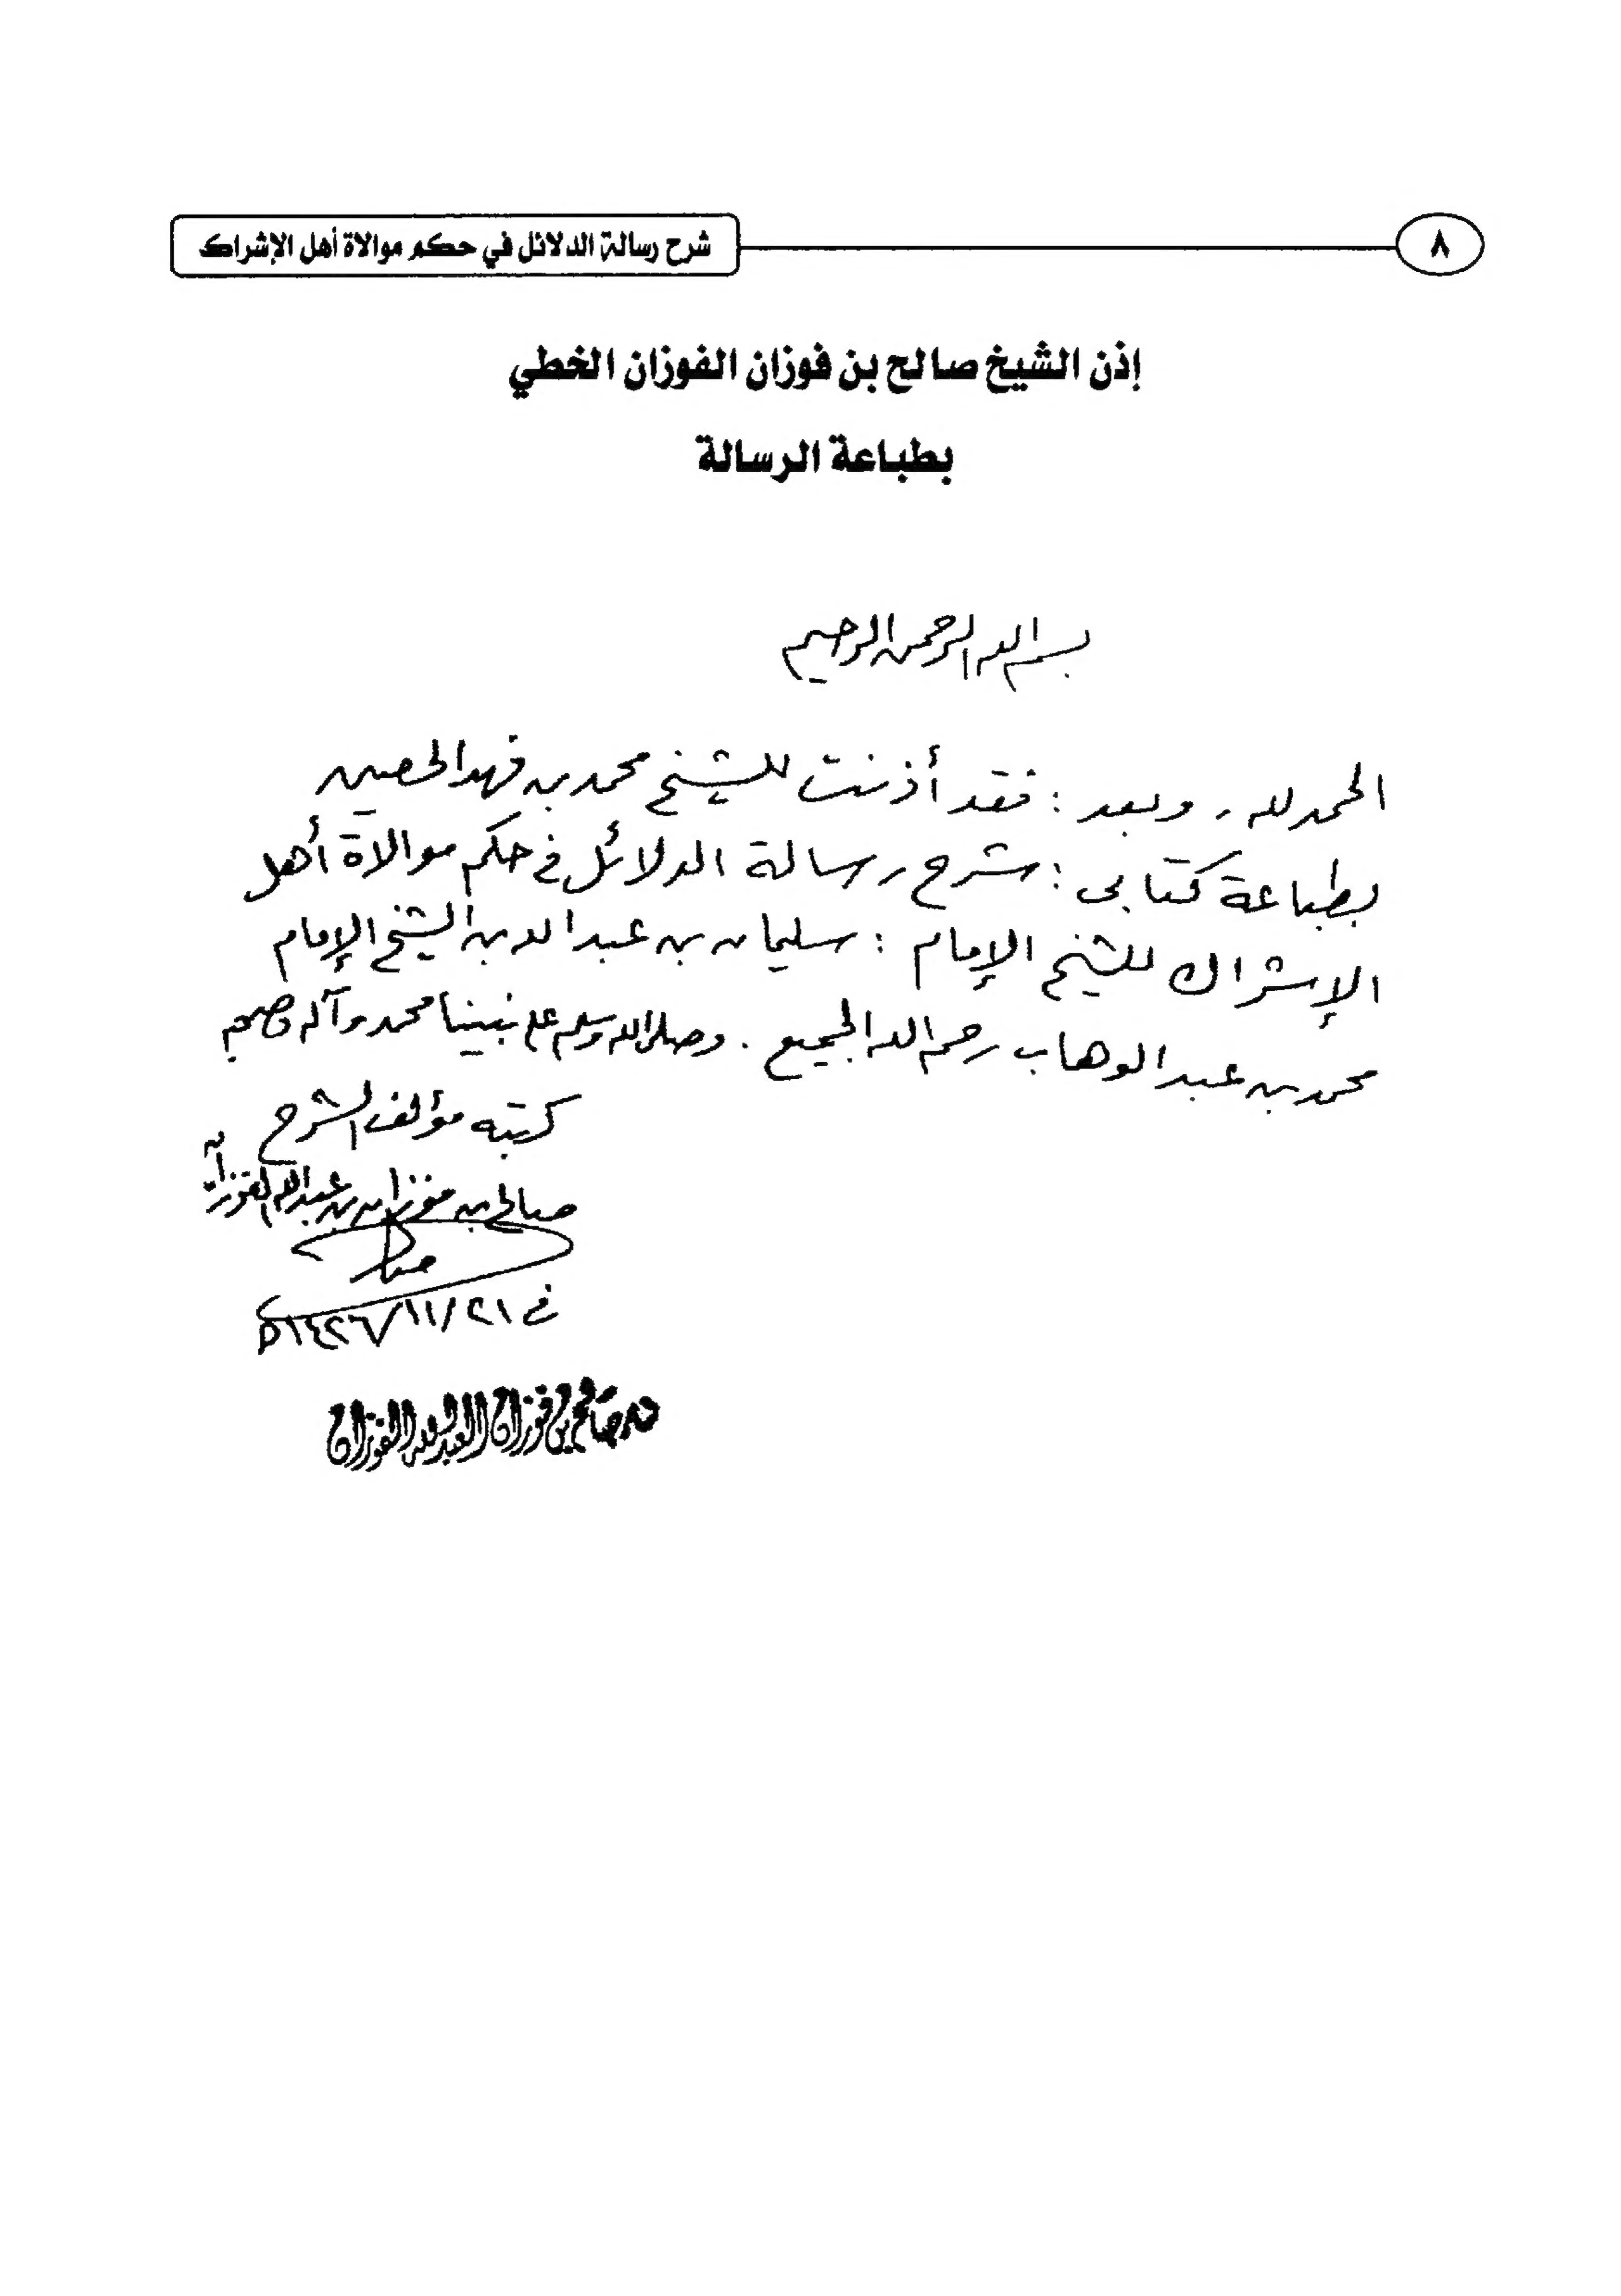 ٨
شرح رسالة الدلائل في حكم موالاة أهل الإشراك
إذن الشيخ صالح بن فوزان الفوزان الخطي
بطباعة الرسالة
بسم الله الرحمن الرحيم
الحمد لله، وبعد: فقد أذنت للشيخ محمد بن فهد الحصين
بطباعة كتابي: شرح رسالة الدلائل في حكم موالاة أهل
الإشراك للشيخ الإمام: سليمان بن عبد الله بن الشيخ الإمام
محمد بن عبد الوهاب رحم الله الجميع. وصلى الله وسلم على نبينا محمد وآله وصحبه
كتبه مؤلف الشرح
صالح بن فوزان بن عبد الله الفوزان
في ٢١/١١/١٤٢٦هـ
صالح بن فوزان العبد الله الفوزان